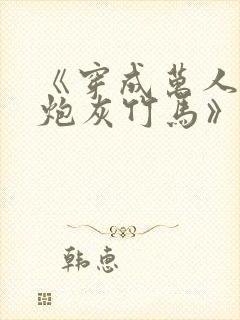 《穿成萬人
炮灰竹馬》
韩惠